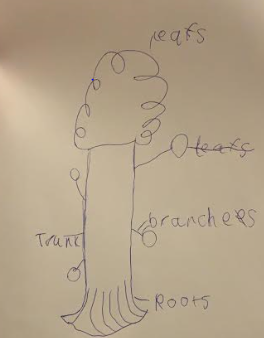 leafs
leafs
branchers
Trunk
Roots